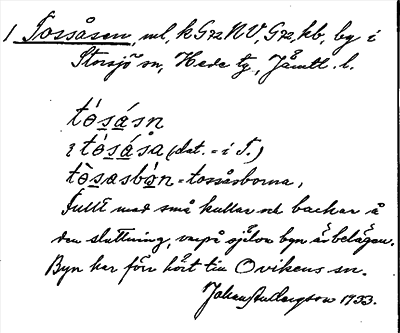 1 Tossåsen, ml, k G72 NV, G72, kb, by i
Storsjö sn, Hede tg, Jämtl. l.
tósásn
i tósásȧ (dat. = i T.)
tòsasbȯn = tossåsborna,
Fullt med små kullar och backar å
den sluttning, varpå själva byn är belägen.
Byn har förr hört till Ovikens sn.
Johan 1933.